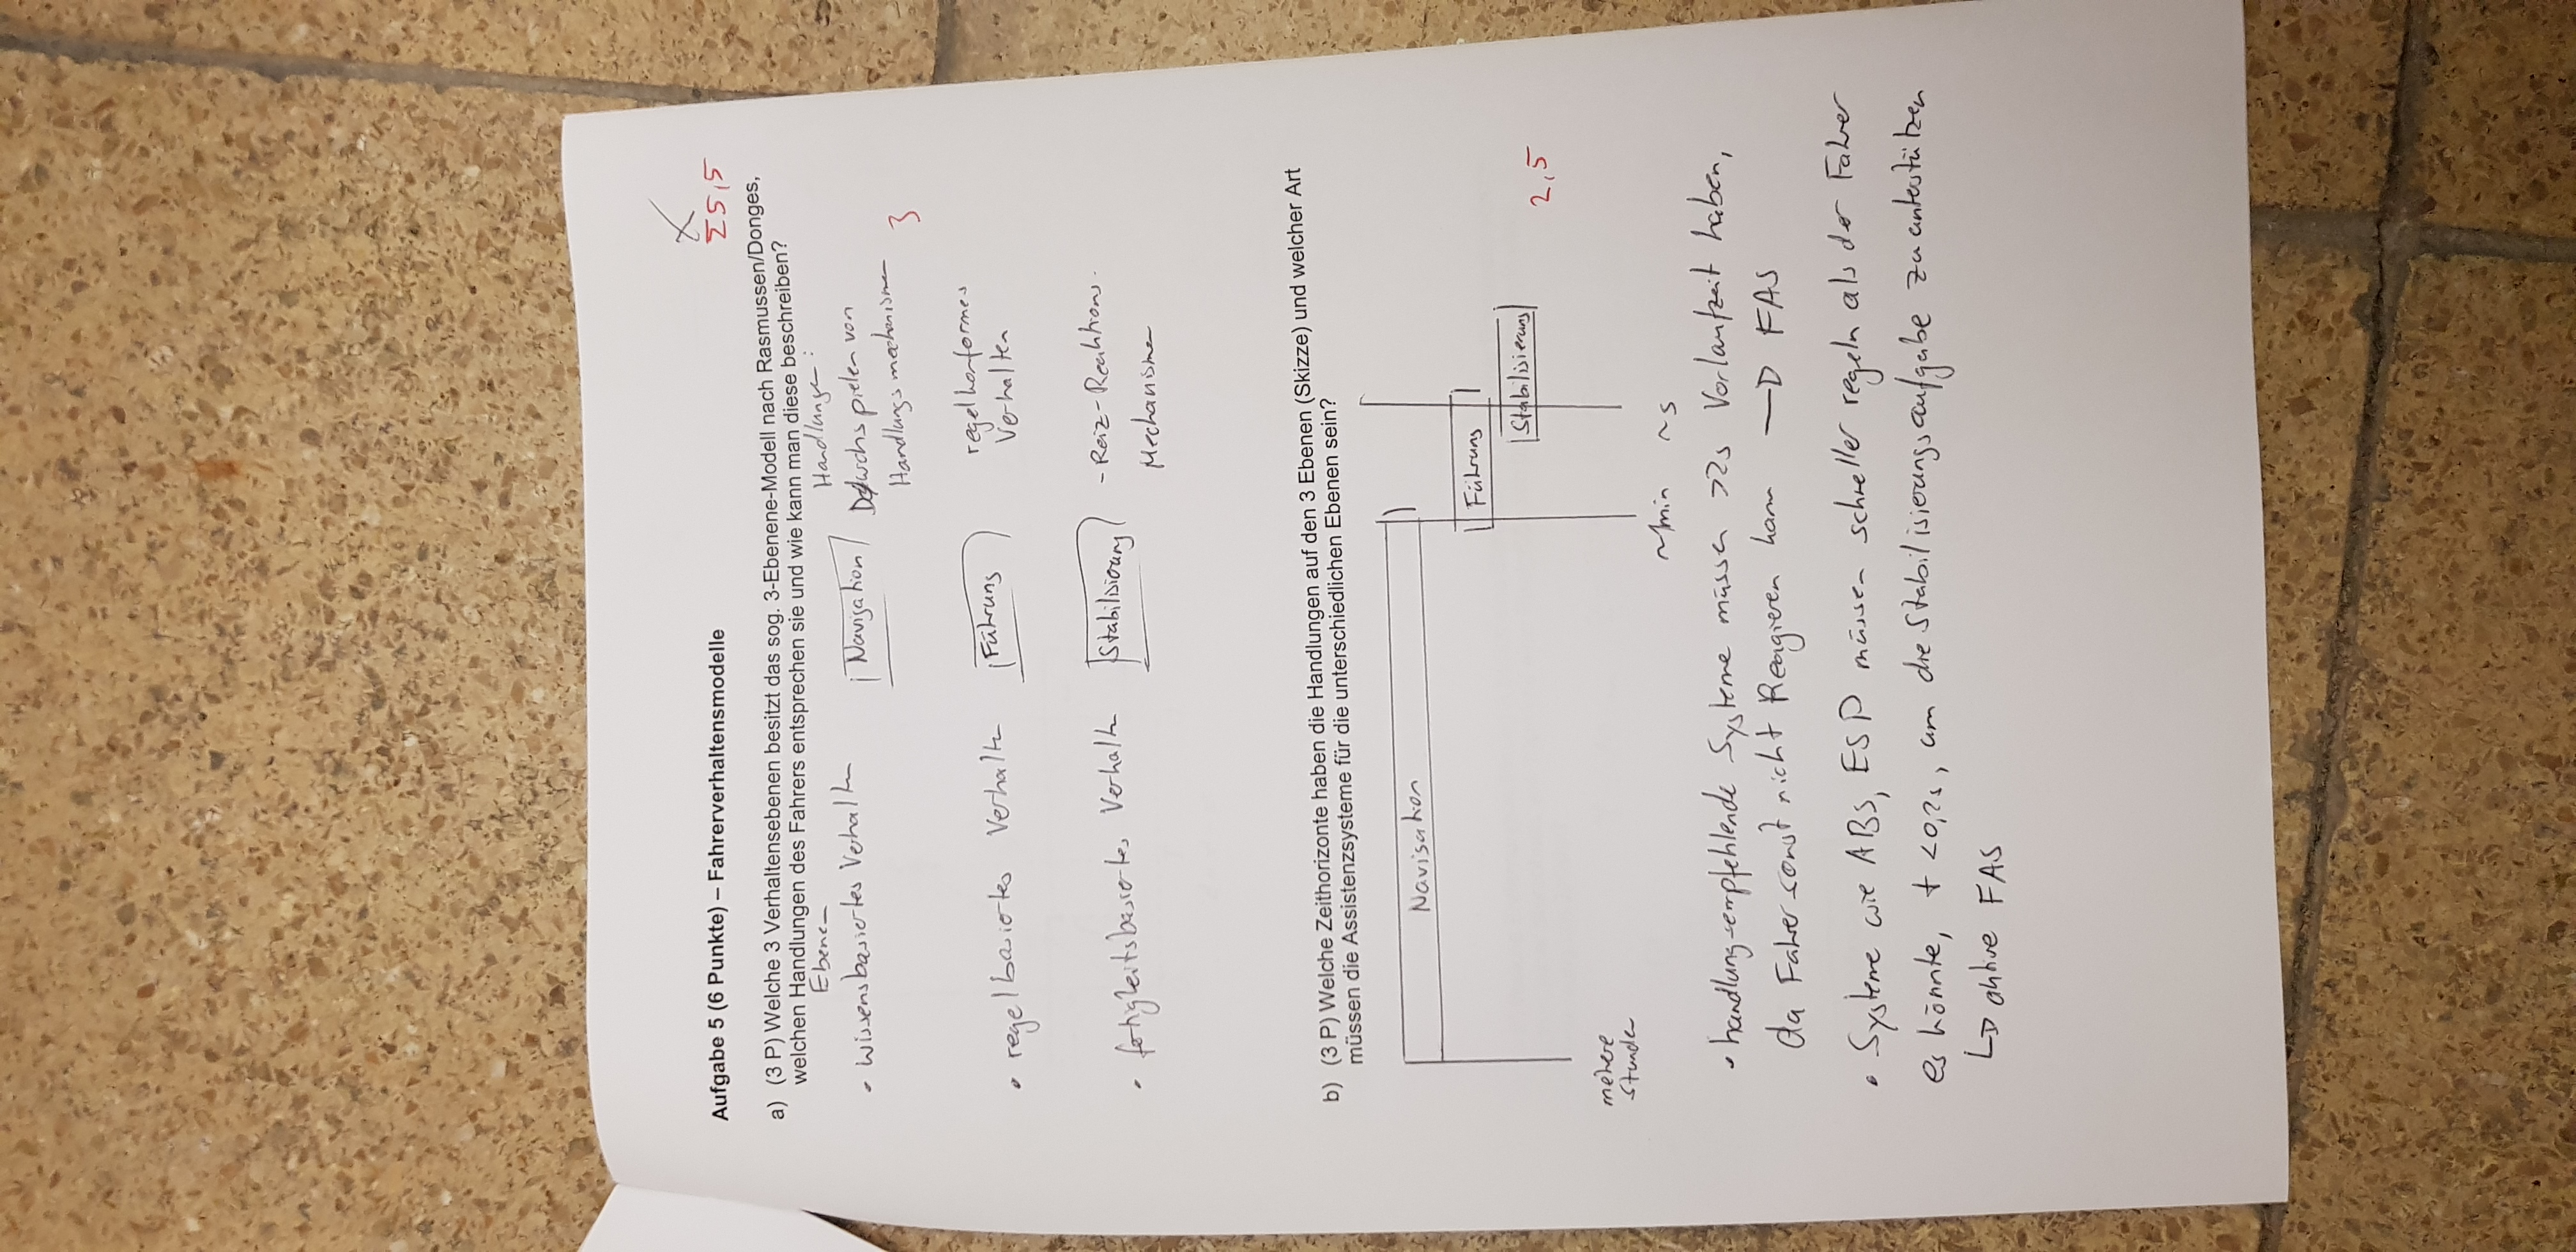 Aufgabe 5 (6 Punkte) – Fahrerverhaltensmodelle
Σ5,5
a) (3 P) Welche 3 Verhaltensebenen besitzt das sog. 3-Ebenene-Modell nach Rasmussen/Donges,
welchen Handlungen des Fahrers entsprechen sie und wie kann man diese beschreiben?
Ebenen
Handlungen:
• wissensbasiertes Verhalten Navigation Durchspielen von
Handlungsmechanismen
3
• regelbasiertes Verhalten Führung regelkonformes
Verhalten
• fertigkeitsbasiertes Verhalten Stabilisierung - Reiz-Reaktions-
Mechanismen
b) (3 P) Welche Zeithorizonte haben die Handlungen auf den 3 Ebenen (Skizze) und welcher Art
müssen die Assistenzsysteme für die unterschiedlichen Ebenen sein?
Navigation
Führung
Stabilisierung
2,5
mehere
Stunden
~1min ~s
• handlungsempfehlende Systeme müssen >2s Vorlaufzeit haben,
da Fahrer sonst nicht Reagieren kann → FAS
• Systeme wie ABS, ESP müssen schneller regeln als der Fahrer
es könnte, t <0,2s, um die Stabilisierungsaufgabe zu unterstützen
↳ aktive FAS